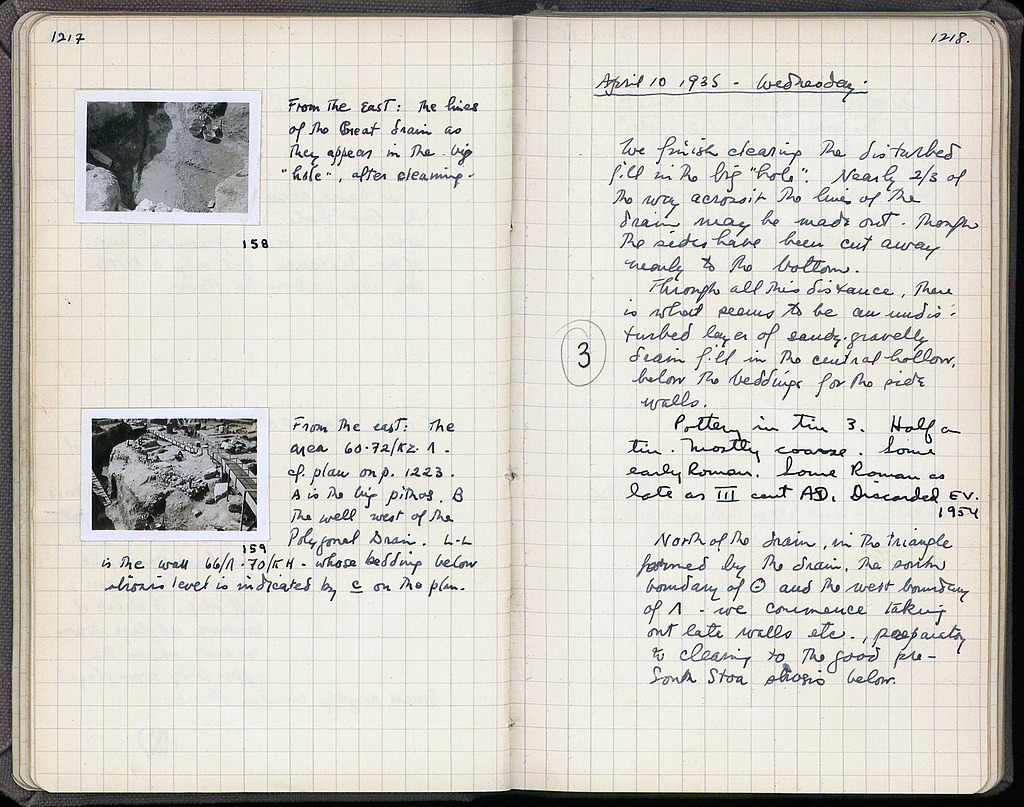 1217
From the east: the lines
of the Great Drain as
they appear in the big
"hole", after cleaning.
158
From the east: the
area 60-72/ΚΖ-Λ.
cf. plan on p. 1223.
A is the big pithos. B
the well west of the
Polygonal Drain. L-L
159
is the wall 66/Λ-70/ΚΗ - whose bedding below
strosis level is indicated by c on the plan.
1218.
April 10 1935 - Wednesday.
We finish clearing the disturbed
fill in the big "hole". Nearly 2/3 of
the way across it the lines of the
drain may be made out. Though
the sides have been cut away
nearly to the bottom.
Through all this distance, there
is what seems to be an undis-
turbed layer of sandy, gravelly
3
drain fill in the central hollow,
below the beddings for the side
walls.
Pottery in tin 3. Half a
tin. Mostly coarse. Some
early Roman. Some Roman as
late as III cent AD. Discarded EV.
1954
North of the drain, in the triangle
formed by the drain, the south
boundary of Θ and the west boundary
of Λ - we commence taking
out late walls etc., preparatory
to clearing to the good pre-
South Stoa strosis below.